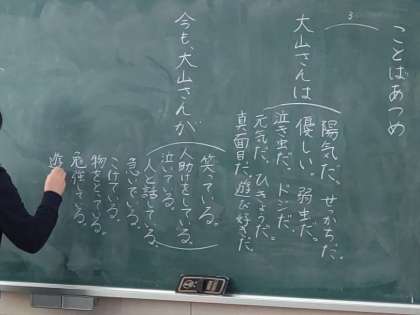 ことばあつめ
3
大山さんは
陽気だ。せっかちだ。
優しい。弱虫だ。
泣き虫だ、ドジだ。
元気だ、ひきょうだ。
真面目だ、遊び好きだ、
今も、大山さんが
笑っている。
人助けをしている。
泣いている。
人と話している。
急いでいる。
こけている。
物をとっている。
勉強している。
遊